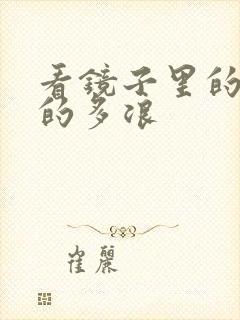 看镜子里的
的多浪
崔丽